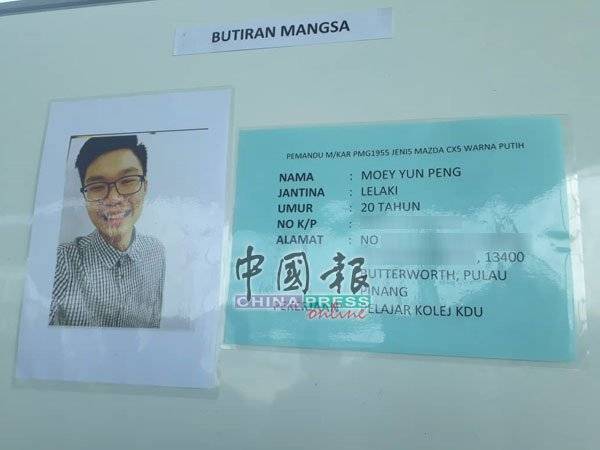 BUTIRAN MANGSA
PEMANDU M/KAR PMG1955 JENIS MAZDA CX5 WARNA PUTIH
NAMA : MOEY YUN PENG
JANTINA : LELAKI
UMUR : 20 TAHUN
NO K/P :
ALAMAT : NO
, 13400
BUTTERWORTH, PULAU
PINANG
PEKERJAAN PELAJAR KOLEJ KDU
中國報
CHINA PRESS
online